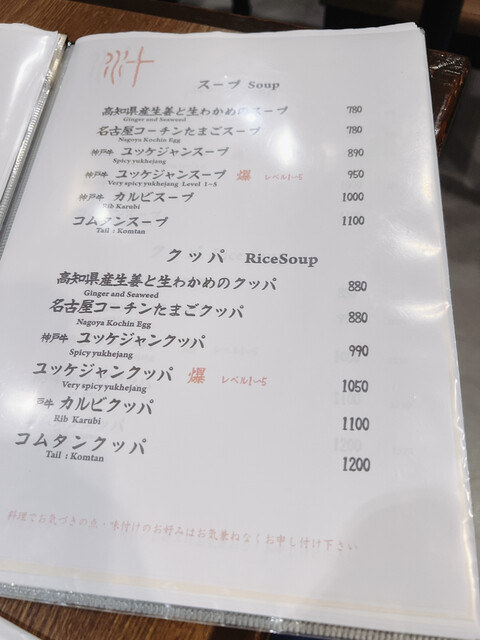 汁
スープ Soup
高知県産生姜と生わかめのスープ 780
Ginger and Seaweed
名古屋コーチンたまごスープ 780
Nagoya Kochin Egg
神戸牛 ユッケジャンスープ 890
Spicy yukhejang
神戸牛 ユッケジャンスープ 爆 レベル1~5 950
Very spicy yukhejang Level 1~5
神戸牛 カルビスープ 1000
Rib Karubi
コムタンスープ 1100
Tail : Komtan
クッパ RiceSoup
高知県産生姜と生わかめのクッパ 880
Ginger and Seaweed
名古屋コーチンたまごクッパ 880
Nagoya Kochin Egg
神戸牛 ユッケジャンクッパ 990
Spicy yukhejang
ユッケジャンクッパ 爆 レベル1~5 1050
Very spicy yukhejang
戸牛 カルビクッパ 1100
Rib Karubi
コムタンクッパ 1200
Tail : Komtan
料理でお気づきの点・味付けのお好みはお気兼ねなくお申し付け下さい